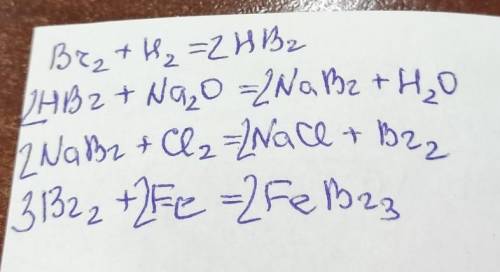 Br₂ + H₂ = 2HBr
2HBr + Na₂O = 2NaBr + H₂O
2NaBr + Cl₂ = 2NaCl + Br₂
3Br₂ + 2Fe = 2FeBr₃